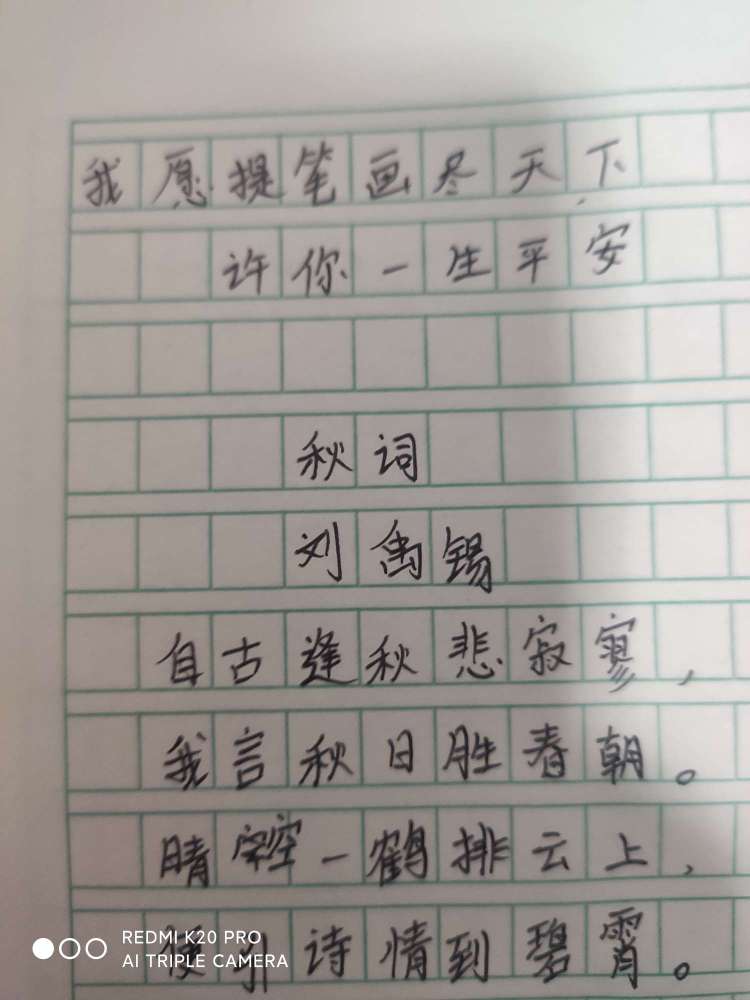 我愿提笔画尽天下
许你一生平安
秋词
刘禹锡
自古逢秋悲寂寥,
我言秋日胜春朝。
晴空一鹤排云上,
便引诗情到碧霄。
REDMI K20 PRO
AI TRIPLE CAMERA